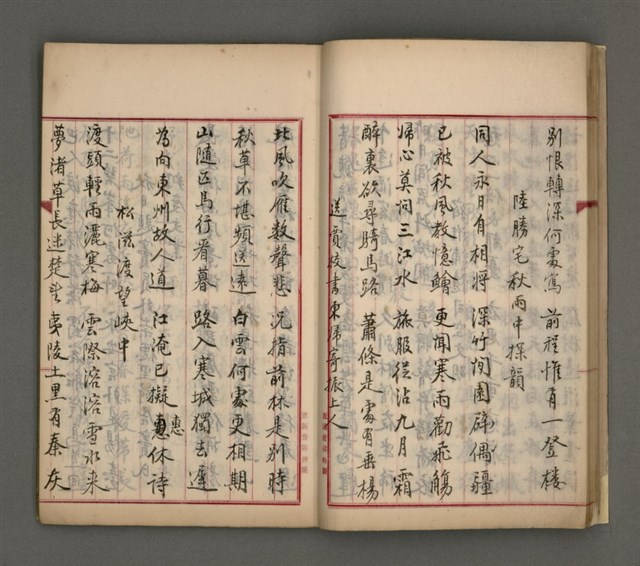 別恨轉深何處寫 前程惟有一登樓
陸勝宅秋雨中探韻
同人永日自相將 深竹閒園辟偶疆
已被秋風教憶鱠 更聞寒雨勸飛觴
歸心莫問三江水 旅服從沾九月霜
醉裏欲尋騎馬路 蕭條是處有垂楊
送賈校書東歸寄振上人
北風吹雁數聲悲 況指前林是別時
秋草不堪頻送遠 白雲何處更相期
山隨匹馬行看暮 路入寒城獨去遲
為向東州故人道 江淹已擬惠休詩
惠
松滋渡望峽中
渡頭輕雨灑寒梅 雲際溶溶雪水来
夢渚草長迷楚望 夷陵土黑有秦灰